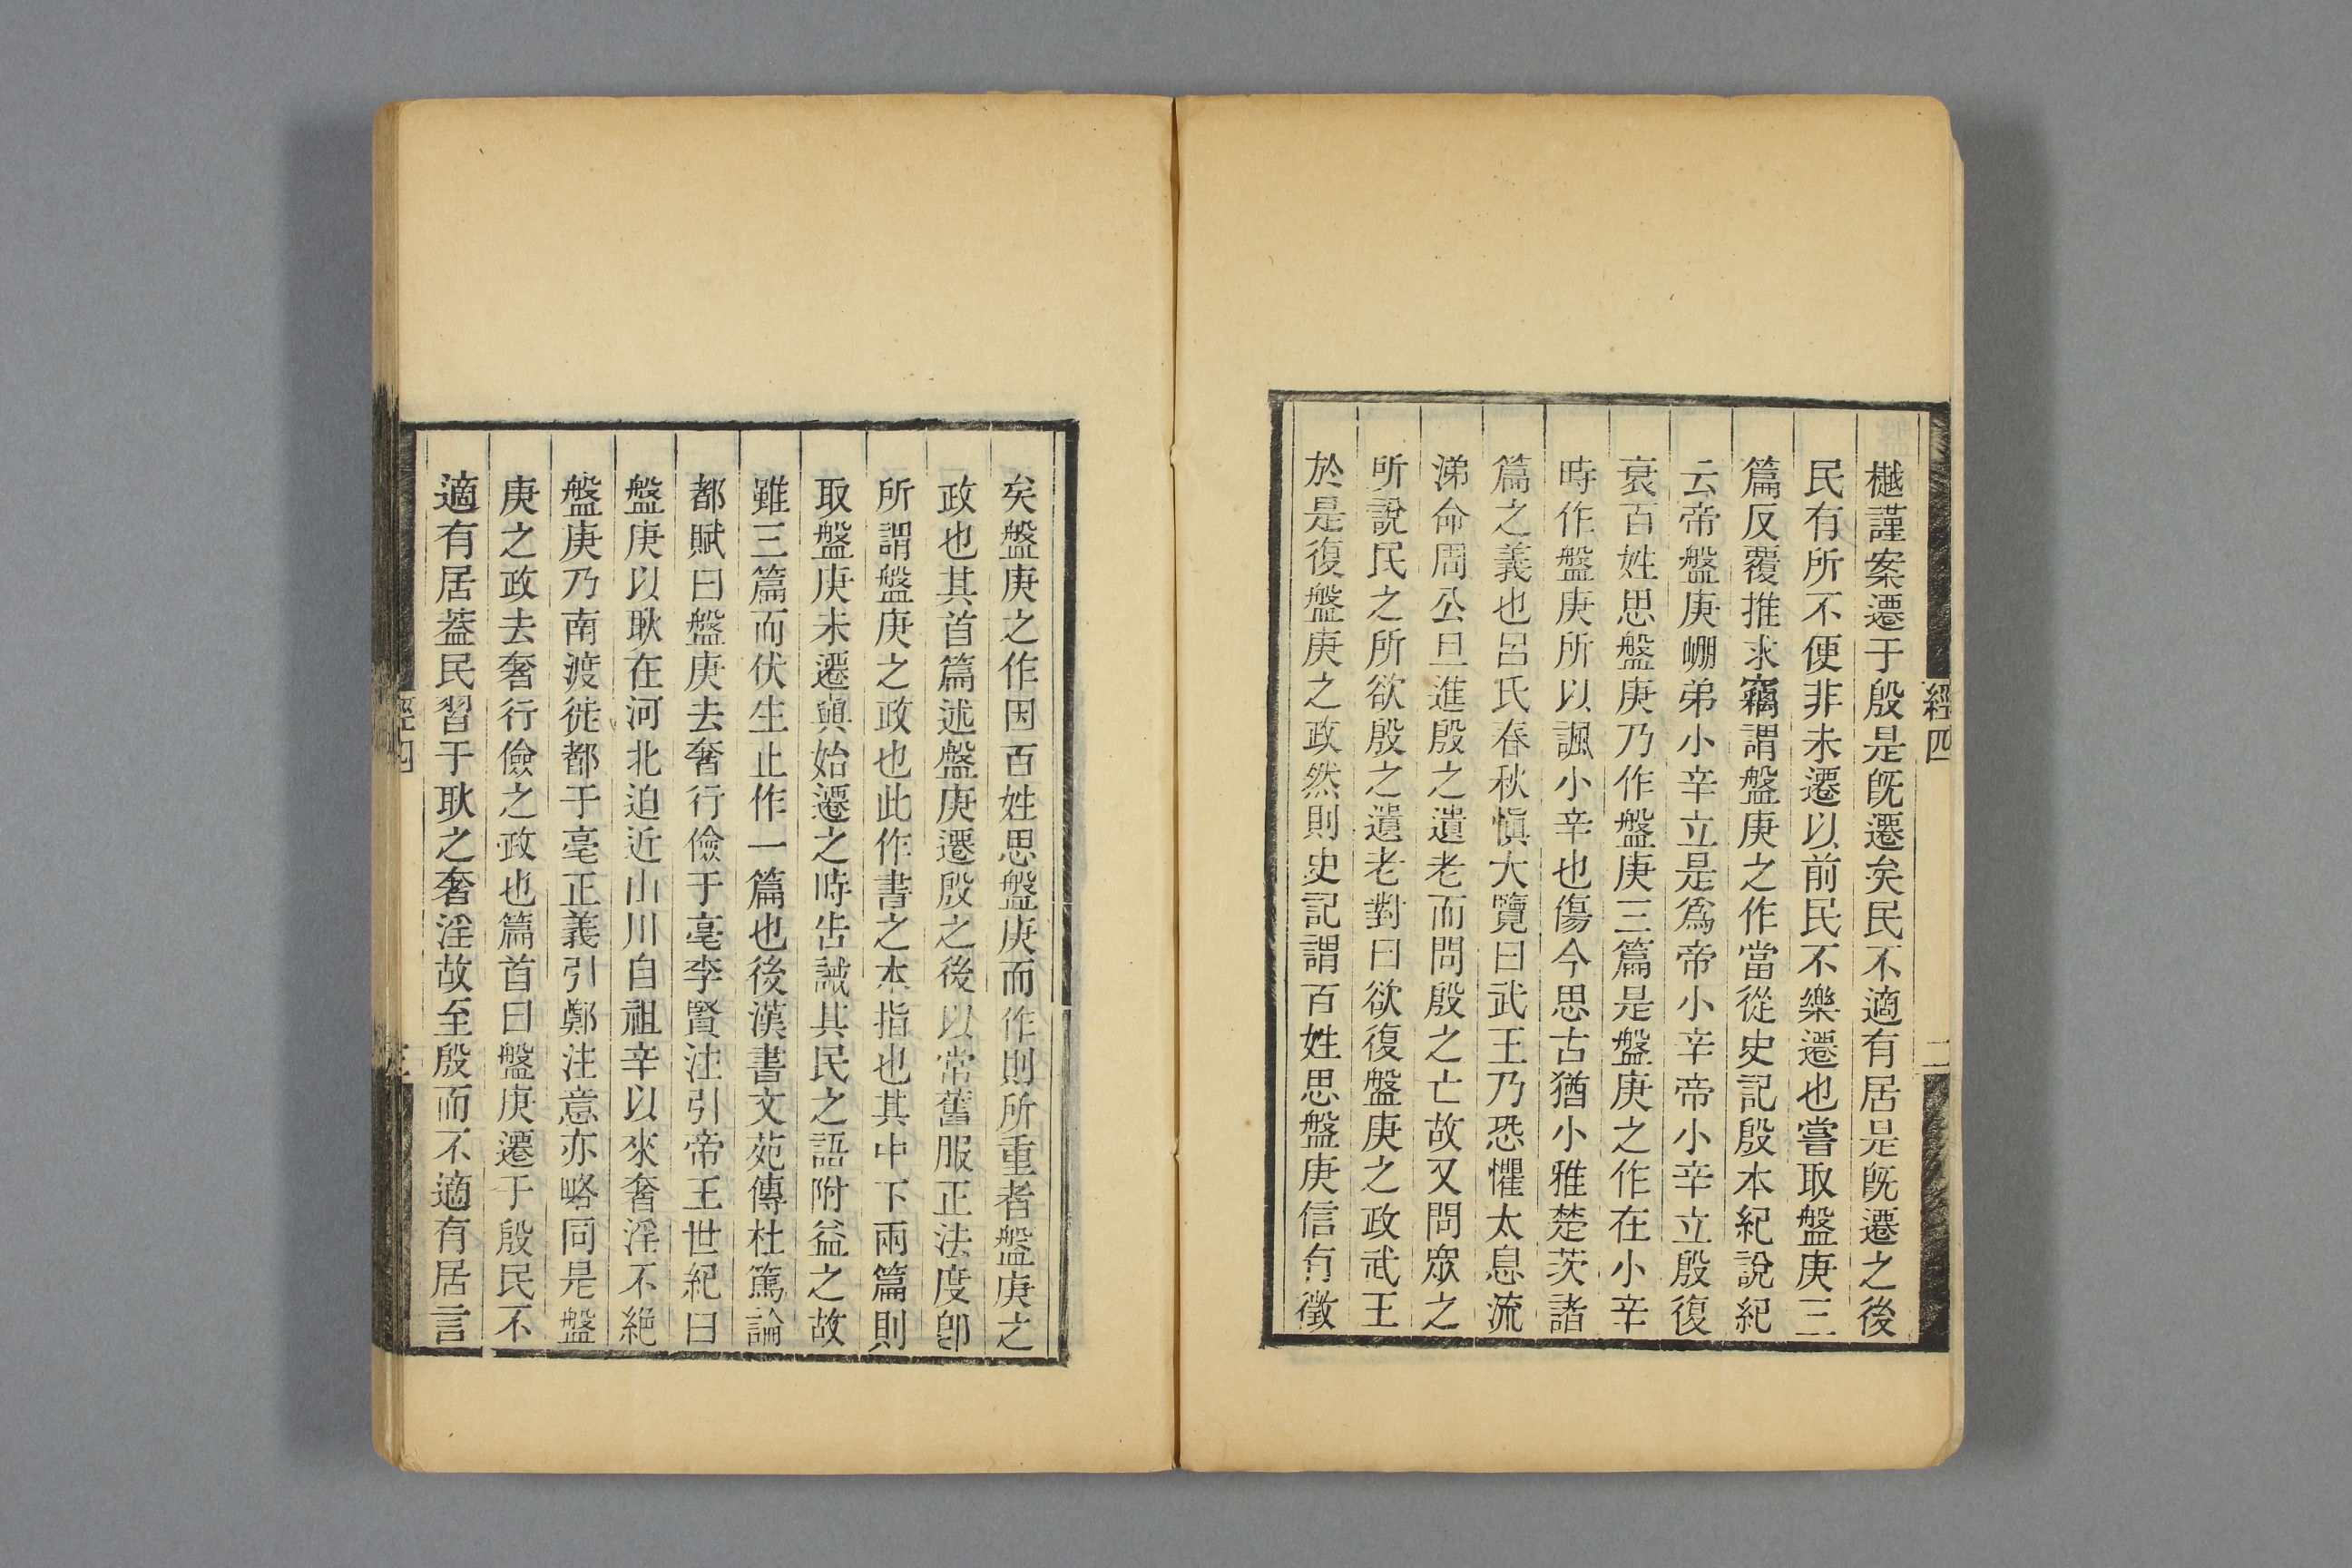 經四
二
樾謹案遷于殷是旣遷矣民不適有居是旣遷之後
民有所不便非未遷以前民不樂遷也嘗取盤庚三
篇反覆推求竊謂盤庚之作當從史記殷本紀說紀
云帝盤庚崩弟小辛立是爲帝小辛帝小辛立殷復
衰百姓思盤庚乃作盤庚三篇是盤庚之作在小辛
時作盤庚所以諷小辛也傷今思古猶小雅楚茨諸
篇之義也呂氏春秋愼大覽曰武王乃恐懼太息流
涕命周公旦進殷之遺老而問殷之亡故又問眾之
所說民之所欲殷之遺老對曰欲復盤庚之政武王
於是復盤庚之政然則史記謂百姓思盤庚信有徵
矣盤庚之作因百姓思盤庚而作則所重者盤庚之
政也其首篇述盤庚遷殷之後以常舊服正法度卽
所謂盤庚之政也此作書之本指也其中下兩篇則
取盤庚未遷與始遷之時告誡其民之語附益之故
雖三篇而伏生止作一篇也後漢書文苑傳杜篤論
都賦曰盤庚去奢行儉于亳李賢注引帝王世紀曰
盤庚以耿在河北迫近山川自祖辛以來奢淫不絕
盤庚乃南渡徙都于亳正義引鄭注意亦略同是盤
庚之政去奢行儉之政也篇首曰盤庚遷于殷民不
適有居葢民習于耿之奢淫故至殷而不適有居言
經四
三